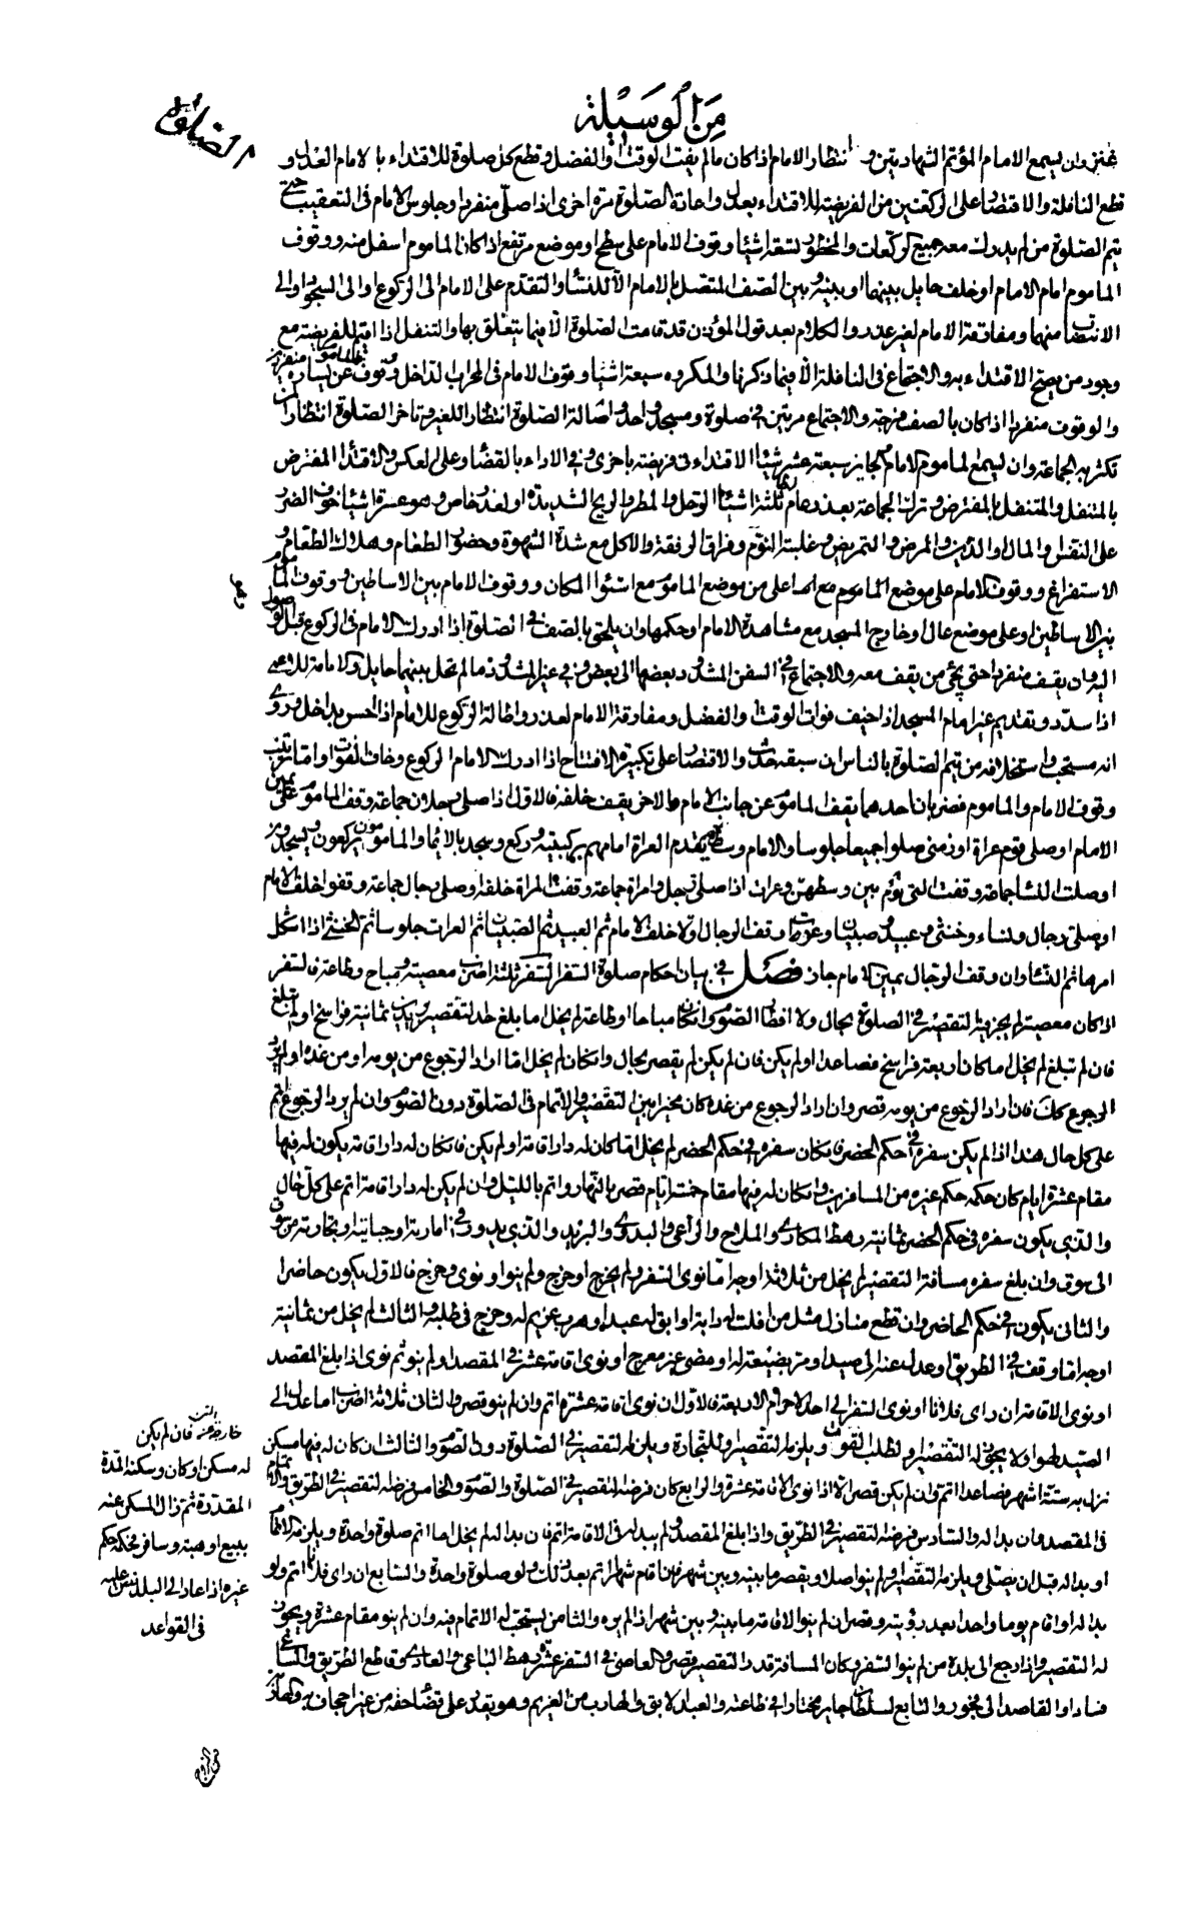 من الوسيلة
الصلوة
وان يسمع الامام المؤتم الشهادتين و انتظار الامام اذا كان ما لم يفت الوقت او الفضل و قطع كل صلوة للاقتداء بالامام العدل و
قطع النافلة والاقتصار على الركعتين من الفريضة للاقتداء بعدل واعادة الصلوة مرة اخرى اذا صلى منفردا وجلوس الامام فى التعقيب حتى
يتم الصلوة من لم يدرك معه جميع الركعات والمحظور تسعة اشياء وقوف الامام على سطح او موضع مرتفع اذا كان الماموم اسفل منه ووقوف
الماموم امام الامام او خلف حايل بينهما او بينه و بين الصف المتصل بالامام الا للنساء والتقدم على الامام الى الركوع والى السجود والى
الانتصاب منهما ومفارقة الامام لغير عذر والكلام بعد قول المؤذن قد قامت الصلوة الا فيما يتعلق بها والتنفل اذا اقيم للفريضة مع
وجود من يصح الاقتداء به والاجتماع فى النافلة الا فيما ذكرنا والمكروه سبعة اشياء وقوف الامام فى المحراب الداخل ووقوف الماموم عن يساره
والوقوف منفردا اذا كان بالصف فرجة والاجتماع مرتين فى صلوة و مسجد واحد واطالة الصلوة انتظارا للغير وتاخر الصلوة انتظار
تكثر به الجماعة وان يسمع الماموم الامام والجايز سبعة عشر شيئا الاقتداء فى فريضة باخرى وفى الاداء بالقضاء وعلى العكس والاقتداء المفترض
بالمتنفل والمتنفل بالمفترض و ترك الجماعة بعذر عام ثلثة اشياء الوحل والمطر والريح الشديدة او لعذر خاص وهو عشرة اشياء خوف الضرر
على النفس والمال او الدين والمرض والتمريض وغلبة النوم و فراق الرفقة والاكل مع شدة الشهوة وحضور الطعام وهلاك الطعام و
الاستفراغ ووقوف الامام على موضع الماموم مع اعلى من موضع الماموم مع استواء المكان ووقوف الامام بين الاساطين ووقوف الماموم
بين الاساطين او على موضع عال او خارج المسجد مع مشاهدة الامام او حكمها وان يلحق بالصف فى الصلوة اذا ادرك الامام فى الركوع قبل الوصول
اليه وان يقف منفردا حتى يجئ من يقف معه والاجتماع فى السفن المشدود بعضها الى بعض و فى غير المشدود ما لم تحل بينهما حايل والامامة للاعمى
اذا سدد و تقديم غير امام المسجد اذا خيف فوات الوقت والفضل ومفارقة الامام لعذر واطالة الركوع للامام اذا احس بداخل وروى
انه مستحب واستخلافه من يتم الصلوة بالناس ان سبقه حدث والاقتصار على تكبيرة الافتتاح اذا ادرك الامام الركوع وخاف الفوت واما ترتيب
وقوف الامام والماموم فضربان احدهما يقف الماموم عن جانب الامام والاخر يقف خلفه فالاول اذا صلى رجلان جماعة وقف الماموم على يمين
الامام او صلى قوم عراة او زمنى صلوا جميعا جلوسا والامام وسطهم يتقدم العراة امامهم بركبتيه و ركع وسجد بالايماء والمامومون يركعون و يسجدون
او صلت النساء جماعة وقفت التى تؤم بين وسطهن وعراة اذا صلى رجل وامراة جماعة وقفت المراة خلفه او صلى رجال جماعة وقفوا خلف الامام
او صلى رجال ونساء وخنثى و عبيد و صبيان وعراة وقف الرجال اولا خلف الامام ثم العبيد ثم الصبيان ثم العراة جلوسا ثم الخنثى اذا اشكل
امرها ثم النساء وان وقف الرجال يمين الامام جاز فصل فى بيان احكام صلوة السفر السفر ثلثة اضرب معصية و مباح وطاعة فالسفر
اذا كان معصية لم يجز فيه التقصير فى الصلوة بحال ولا افطار الصوم وان كان مباحا او طاعة لم يخل اما بلغ حد التقصير بريدين ثمانية فراسخ او لم تبلغ
فان لم تبلغ لم يخل اما كان اربعة فراسخ فصاعدا او لم يكن فان لم يكن لم يقصر بحال وان كان لم يخل اما اراد الرجوع من يومه او من غده او لم يرد
الرجوع فان اراد الرجوع من يومه قصر وان اراد الرجوع من غده كان مخيرا بين التقصير والاتمام فى الصلوة دون الصوم وان لم يرد الرجوع اتم
على كل حال هذا اذا لم يكن سفره فى حكم الحضر فان كان سفره فى حكم الحضر لم يخل اما كان له دار اقامة او لم يكن فان كان له دار اقامة يكون له فيها
مقام عشرة ايام كان حكمه حكم غيره من المسافرين وان كان له فيها مقام خمسة ايام قصر بالنهار واتم بالليل وان لم يكن له دار اقامة اتم على كل حال
والذى يكون سفره فى حكم الحضر ثمانية رهط المكارى والملاح والراعى والبدوى والبريد والذى يدور فى امارته او جبايته او تجارته من سوق
الى سوق وان بلغ سفره مسافة التقصير لم يخل من ثلاثة اوجه اما نوى السفر ولم يخرج او خرج ولم ينو او نوى وخرج فالاول يكون حاضرا
والثانى يكون فى حكم الحاضر وان قطع منازل مثل من افلت له دابة او ابق له عبد او هرب غريم له وخرج فى طلبه والثالث لم يخل من ثمانية
اوجه اما وقف فى الطريق او عدل عنه الى صيد او مر بضيعة له او مضى غير معرج او نوى اقامة عشر فى المقصد او لم ينو ثم نوى اذا بلغ المقصد
او نوى الاقامة ان راى فلانا او نوى السفر الى احد الاحرام الاربعة فالاول ان نوى اقامة عشرة اتم وان لم ينو قصر والثانى ثلاثة اضرب اما عدل الى
الصيد لهوا ولا يجوز له التقصير او لطلب القوت ويلزمه التقصير او للتجارة ويلزمه التقصير فى الصلوة دون الصوم والثالث ان كان له فيها مسكن
نزل به ستة اشهر فصاعدا اتم وان لم يكن قصر الا اذا نوى الاقامة عشرة والرابع كان فرضه التقصير فى الصلوة والصوم والخامس فرضه التقصير فى الطريق والاتمام
فى المقصد وان بدا له والسادس فرضه التقصير فى الطريق واذا بلغ المقصد ولم يبد له فى الاقامة اتم فان بدا له لم يخل اما اتم صلوة واحدة ويلزمه الاتمام
او بدا له قبل ان يصلى ويلزمه التقصير او لم ينو اصلا ويقصر ما بينه وبين شهر فان اقام شهرا اتم بعد ذلك ولو صلوة واحدة والسابع ان راى فلانا اتم ولو
بدا له او اقام يوما واحدا بعد رؤيته وقصر ان لم ينو الاقامة ما بينه وبين شهر اذا لم يره والثامن يستحب له الاتمام فيه وان لم ينو مقام عشرة ويجوز
له التقصير واذا رجع الى بلده من لم ينو السفر وكان المسافة قدر التقصير قصر والعاصى فى السفر عشرة رهط الباغى والعادى وقاطع الطريق والساعى
فسادا والقاصد الى فجور والتابع لسلطان جاير مختارا فى طاعته والعبد الابق والهارب من الغريم وهو يقدر على قضاء حقه من غير اجحاف به
خارجا عنه فان لم يكن
له مسكن او كان وسكنه المدة
المقدرة ثم زال المسكن عنه
ببيع او هبة وسافر فحكمه حكم
غيره اذا عاد الى البلد نص عليه
فى القواعد